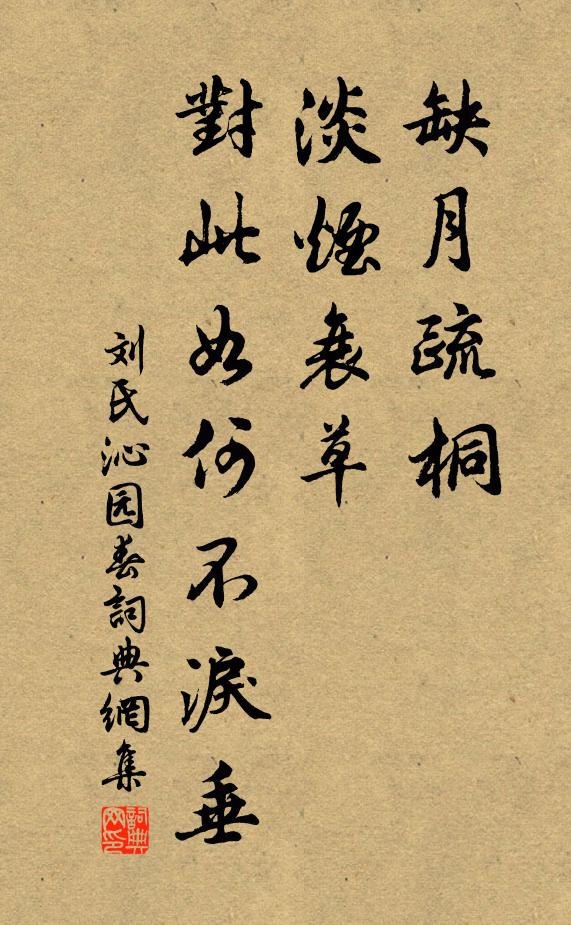 缺月疏桐
淡煙衰草
對此如何不淚垂
刘氏沁园春詞典網集
詞典網印